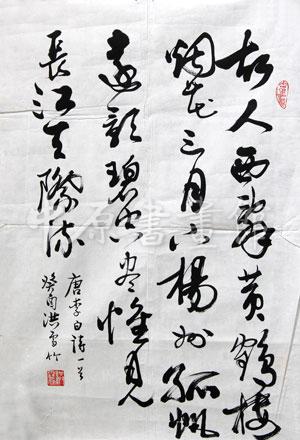 故人西辭黄鶴樓
烟花三月下楊州孤帆
遠影碧空尽惟見
長江天際流
唐李白詩一首
癸酉洪雪竹
中原書畫